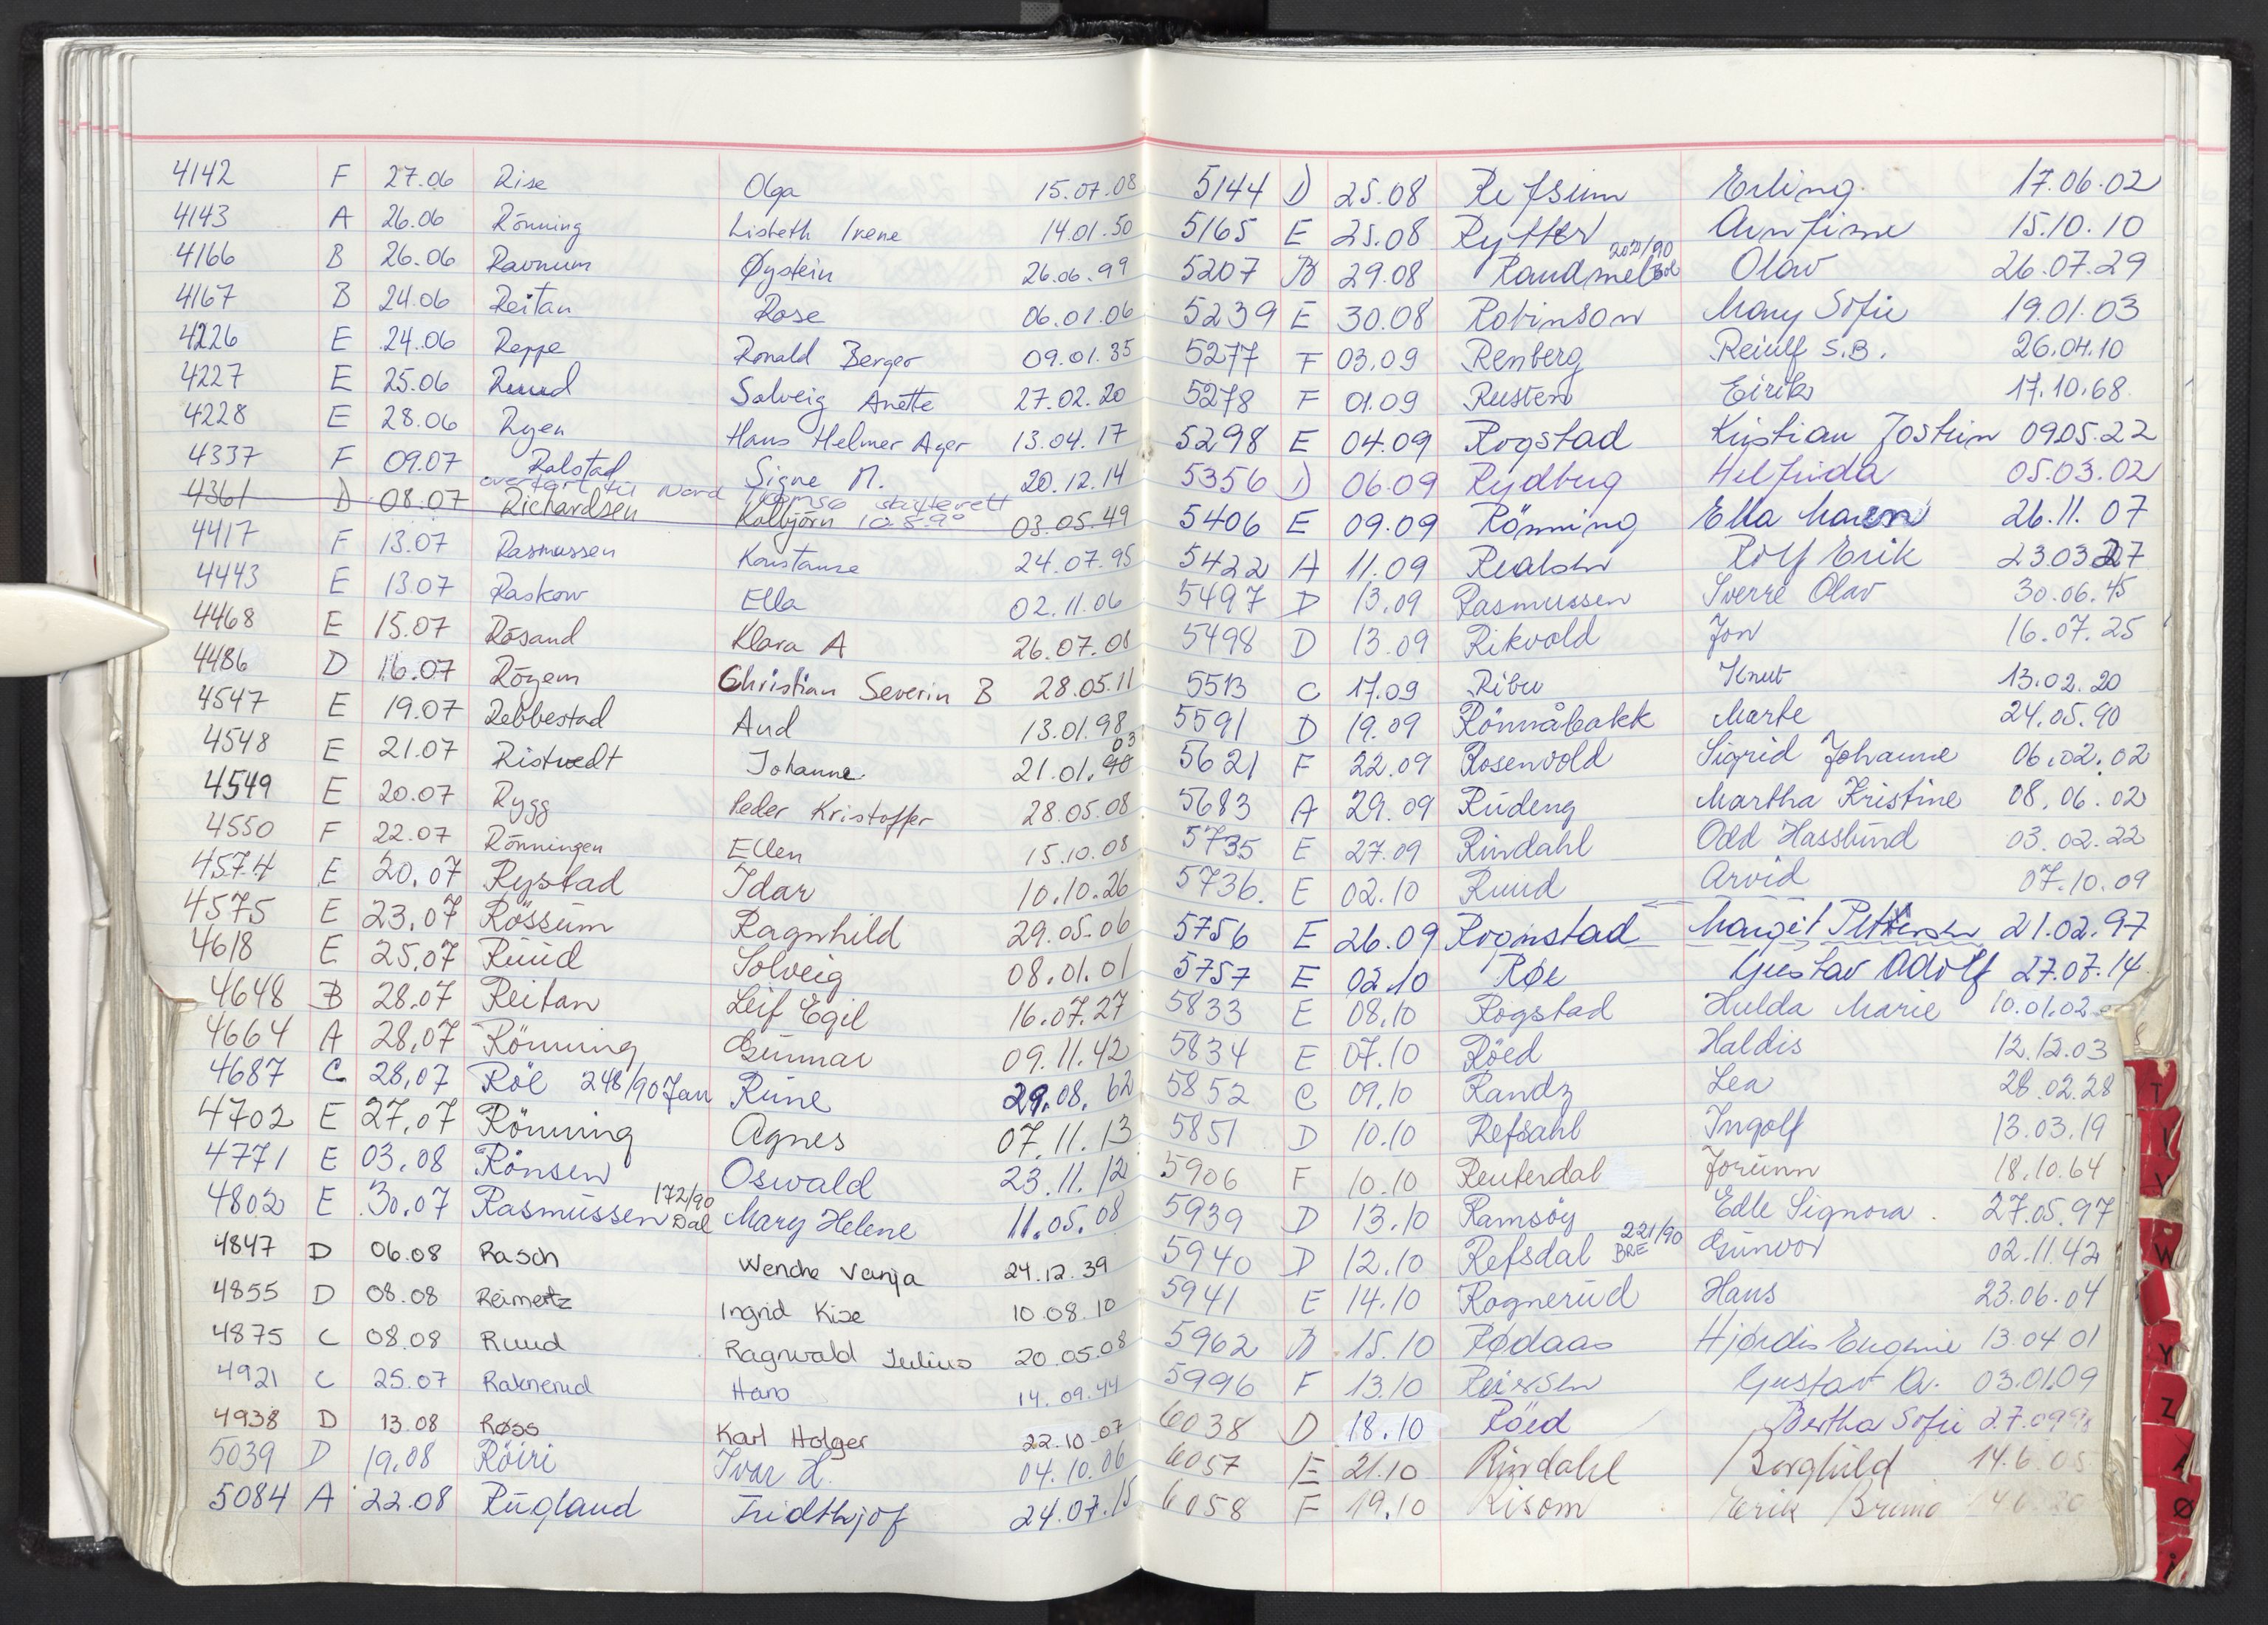 4142 F 27.06 Rise Olga 15.07.08
4143 A 26.06 Rönning Lisbeth Irene 14.01.50
4166 B 26.06 Ravnum Øystein 26.06.99
4167 B 24.06 Reitan Rose 06.01.06
4226 E 24.06 Reppe Ronald Berger 09.01.35
4227 E 25.06 Ruud Solveig Anette 27.02.20
4228 E 28.06 Ryen Hans Helmer Ager 13.04.17
4337 F 09.07 Ralstad Signe M. 20.12.14
overført til Nord Tromsø skifterett
4361 D 08.07 Richardsen Kolbjörn 10.5.90 03.05.49
4417 F 13.07 Rasmussen Konstanse 24.07.95
4443 E 13.07 Raskow Ella 02.11.06
4468 E 15.07 Rösand Klara A 26.07.08
4486 D 16.07 Röyem Christian Severin B 28.05.11
4547 E 19.07 Rebbestad Aud 13.01.98
03
4548 E 21.07 Ristvedt Johanne 21.01.90
4549 E 20.07 Rygg Peder Kristoffer 28.05.08
4550 F 22.07 Rönningen Ellen 15.10.08
4574 E 20.07 Rystad Idar 10.10.26
4575 E 23.07 Rössum Ragnhild 29.05.06
4618 E 25.07 Ruud Solveig 08.01.01
4648 B 28.07 Reitan Leif Egil 16.07.27
4664 A 28.07 Rönning Gunnar 09.11.42
4687 C 28.07 Röe 248/90 Jan Rune 29.08.62
4702 E 27.07 Rönning Agnes 07.11.13
4771 E 03.08 Rönsen Oswald 23.11.12
172/90
4802 E 30.07 Rasmussen Dal Mary Helene 11.05.08
4847 D 06.08 Rasch Wenche Vanja 24.12.39
4855 D 08.08 Reimertz Ingrid Kise 10.08.10
4875 C 08.08 Ruud Ragnvald Julius 20.05.08
4921 C 25.07 Raknerud Hans 14.09.44
4938 D 13.08 Røss Karl Holger 22.10.07
5039 D 19.08 Röiri Ivar H. 04.10.06
5084 A 22.08 Rugland Fridthjof 24.07.15
5144 D 25.08 Refsum Erling 17.06.02
5165 E 25.08 Rytter Arnfinn 15.10.10
202/90
5207 B 29.08 Randmel Bol Olav 26.07.29
5239 E 30.08 Robinson Mary Sofie 19.01.03
5277 F 03.09 Renberg Reiulf S.B. 26.04.10
5278 F 01.09 Rusten Eirik 17.10.68
5298 E 04.09 Rogstad Kristian Jostein 09.05.22
5356 D 06.09 Rydberg Helfrida 05.03.02
5406 E 09.09 Rönning Ella Maren 26.11.07
5422 A 11.09 Rolf Erik 23.03.27
5497 D 13.09 Rasmussen Sverre Olav 30.06.45
5498 D 13.09 Rikvold Jon 16.07.25
5513 C 17.09 Ribu Knut 13.02.20
5591 D 19.09 Rönnåbakk Marte 24.05.90
5621 F 22.09 Rosenvold Sigrid Johanne 06.02.02
5683 A 29.09 Rudeng Martha Kristine 08.06.02
5735 E 27.09 Rindahl Odd Hasslund 03.02.22
5736. E 02.10 Ruud Arvid 07.10.09
5756 E 26.09 Rognstad Margit Pettersen 21.02.97
5757 E 02.10 Røe Gustav Adolf 27.07.14
5833 E 08.10 Rogstad Hulda Marie 10.01.02
5834 E 07.10 Röed Haldis 12.12.03
5852 C 09.10 Randz Lea 28.02.28
5851 D 10.10 Refsahl Ingolf 13.03.19
5906 F 10.10 Reuterdal Jorunn 18.10.64
5939 D 13.10 Ramsöy Edle Signora. 27.05.97
221/90
5940 D 12.10 Refsdal BRE Gunvor 02.11.42
5941 E 14.10 Rognerud Hans 23.06.04
5962 B 15.10 Rødaas Hjørdis Eugenie 13.04 01
5996 F 13.10 Reiersen Gustav A. 03.01.09
6038 D 18.10 Röed Bertha Sofie 27.09.98
6057 E 21.10 Rindahl Borghild 14.6.05
6058 F 19.10 Risom Erik Bruno
T
V
W
Y
Z
Ø